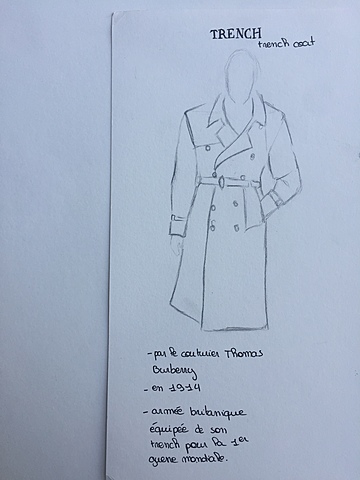 TRENCH
trench coat
- par le couturier Thomas
Burberry
- en 1914
- armée britanique
équipée de son
trench pour la 1er
guerre mondiale.